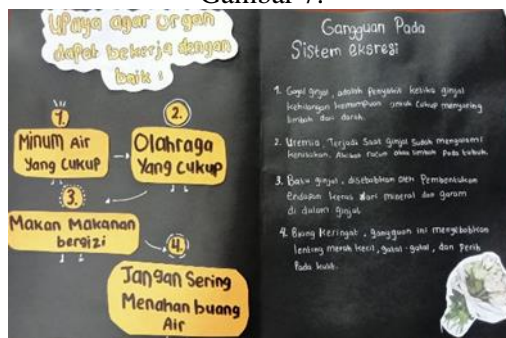 Gambar 7.
Upaya agar organ
dapat bekerja dengan
baik :
1.
Minum Air
Yang Cukup
2.
Olahraga
Yang Cukup
3.
Makan Makanan
bergizi
4.
Jangan Sering
Menahan buang
Air
Gangguan Pada
Sistem eksresi
1. Gagal ginjal, adalah Penyakit ketika ginjal
kehilangan kemampuan untuk cukup menyaring
limbah dari darah.
2. Uremia, Terjadi Saat ginjal Sudah mengalami
kerusakan, Akibat racun atau limbah Pada tubuh.
3. Batu ginjal, disebabkan oleh Pembentukan
endapan keras dari mineral dan garam
di dalam ginjal
4. Biang keringat, gangguan ini menyebabkan
lenting merah kecil, gatal-gatal, dan Perih
Pada kulit.